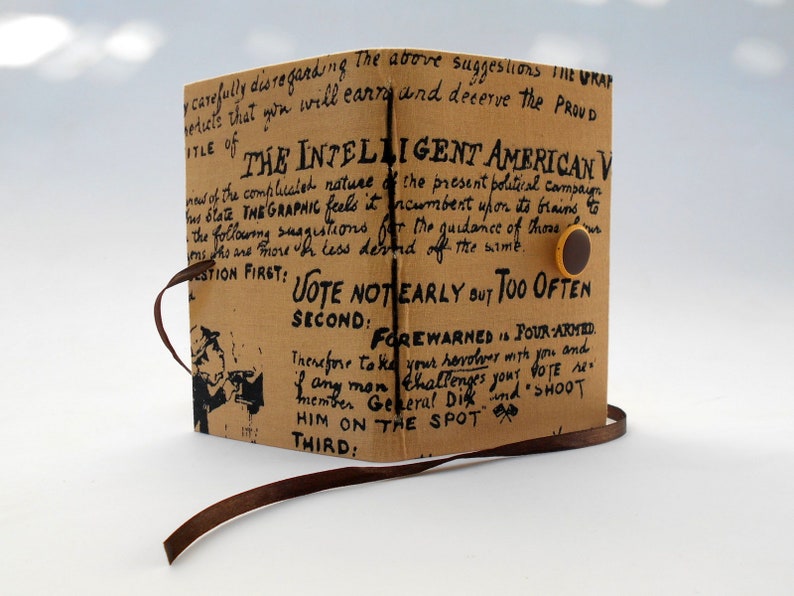 y carefully disregarding the above suggestions THE GRAP
redicts that you will earn and deserve the PROUD
ITLE of
THE INTELLIGENT AMERICAN V
view of the complicated nature of the present political campaign
this State THE GRAPHIC feels it incumbent upon its brains to
the following suggestions for the guidance of those of our
zens who are more or less devoid of the same.
ESTION FIRST:
VOTE NOT EARLY BUT TOO OFTEN
SECOND:
FOREWARNED IS FOUR-ARMED.
Therefore to take your revolver with you and
if any man challenges your VOTE re=
member General Dix and "SHOOT
HIM ON THE SPOT"
THIRD: